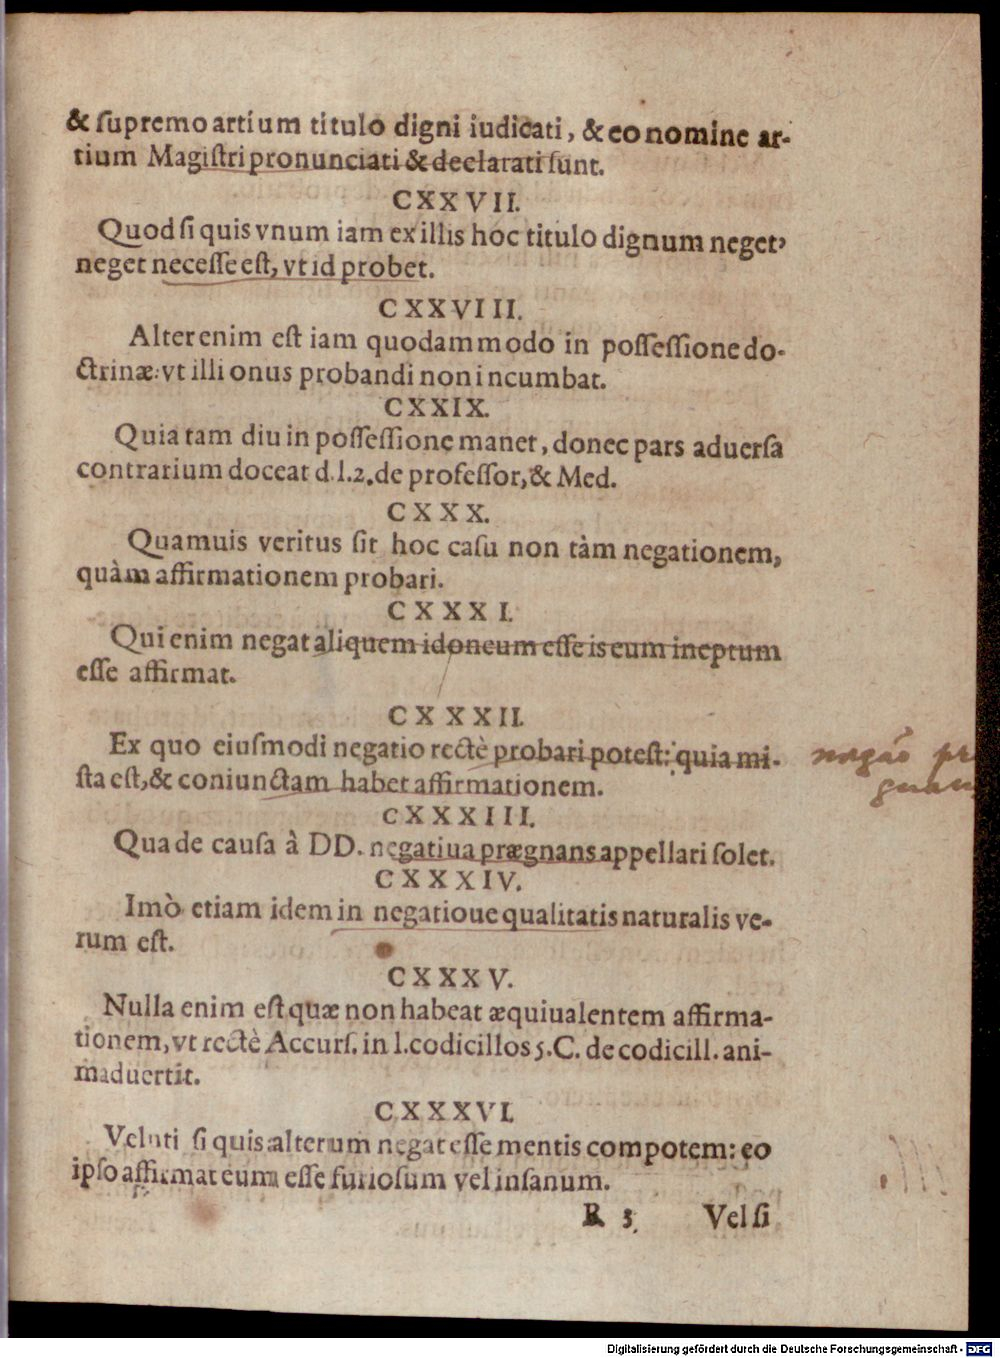 & ſupremo artium titulo digni iudicati, & eo nomine ar-
tium Magiſtri pronunciati & declarati ſunt.
CXXVII.
Quod ſi quis vnum iam ex illis hoc titulo dignum neget,
neget neceſſe eſt, vt id probet.
CXXVIII.
Alter enim eſt iam quodammodo in poſſeſſione do-
ctrinæ: vt illi onus probandi non incumbat.
CXXIX.
Quia tam diu in poſſeſſione manet, donec pars aduerſa
contrarium doceat d.l.2. de profeſſor, & Med.
CXXX.
Quamuis veritus ſit hoc caſu non tàm negationem,
quàm affirmationem probari.
CXXXI.
Qui enim negat aliquem idoneum eſſe is eum ineptum
eſſe affirmat.
CXXXII.
Ex quo eiuſmodi negatio rectè probari poteſt: quia mi-
ſta eſt, & coniunctam habet affirmationem.
CXXXIII.
Qua de cauſa à DD. negatiua prægnans appellari ſolet.
CXXXIV.
Imò etiam idem in negatioue qualitatis naturalis ve-
rum eſt.
CXXXV.
Nulla enim eſt quæ non habeat æquiualentem affirma-
tionem, vt rectè Accurſ. in l. codicillos 5. C. de codicill. ani-
maduertit.
CXXXVI.
Veluti ſi quis alterum negat eſſe mentis compotem: eo
ipſo affirmat eum eſſe furioſum vel inſanum.
R 3 Vel ſi
Digitalisierung gefördert durch die Deutsche Forschungsgemeinschaft - DFG